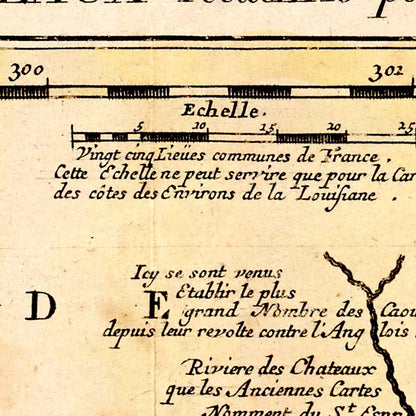 300 302
Echelle.
5 10 15 20 25
Vingt cinq Lieües communes de France.
Cette Echelle ne peut servire que pour la Car
des côtes des Environs de la Louisiane.
Icy se sont venus
D E Etablir le plus
grand Nombre des Caou
depuis leur revolte contre l'Anglois
Riviere des Chateaux
que les Anciennes Cartes
Nomment du S.t Esp